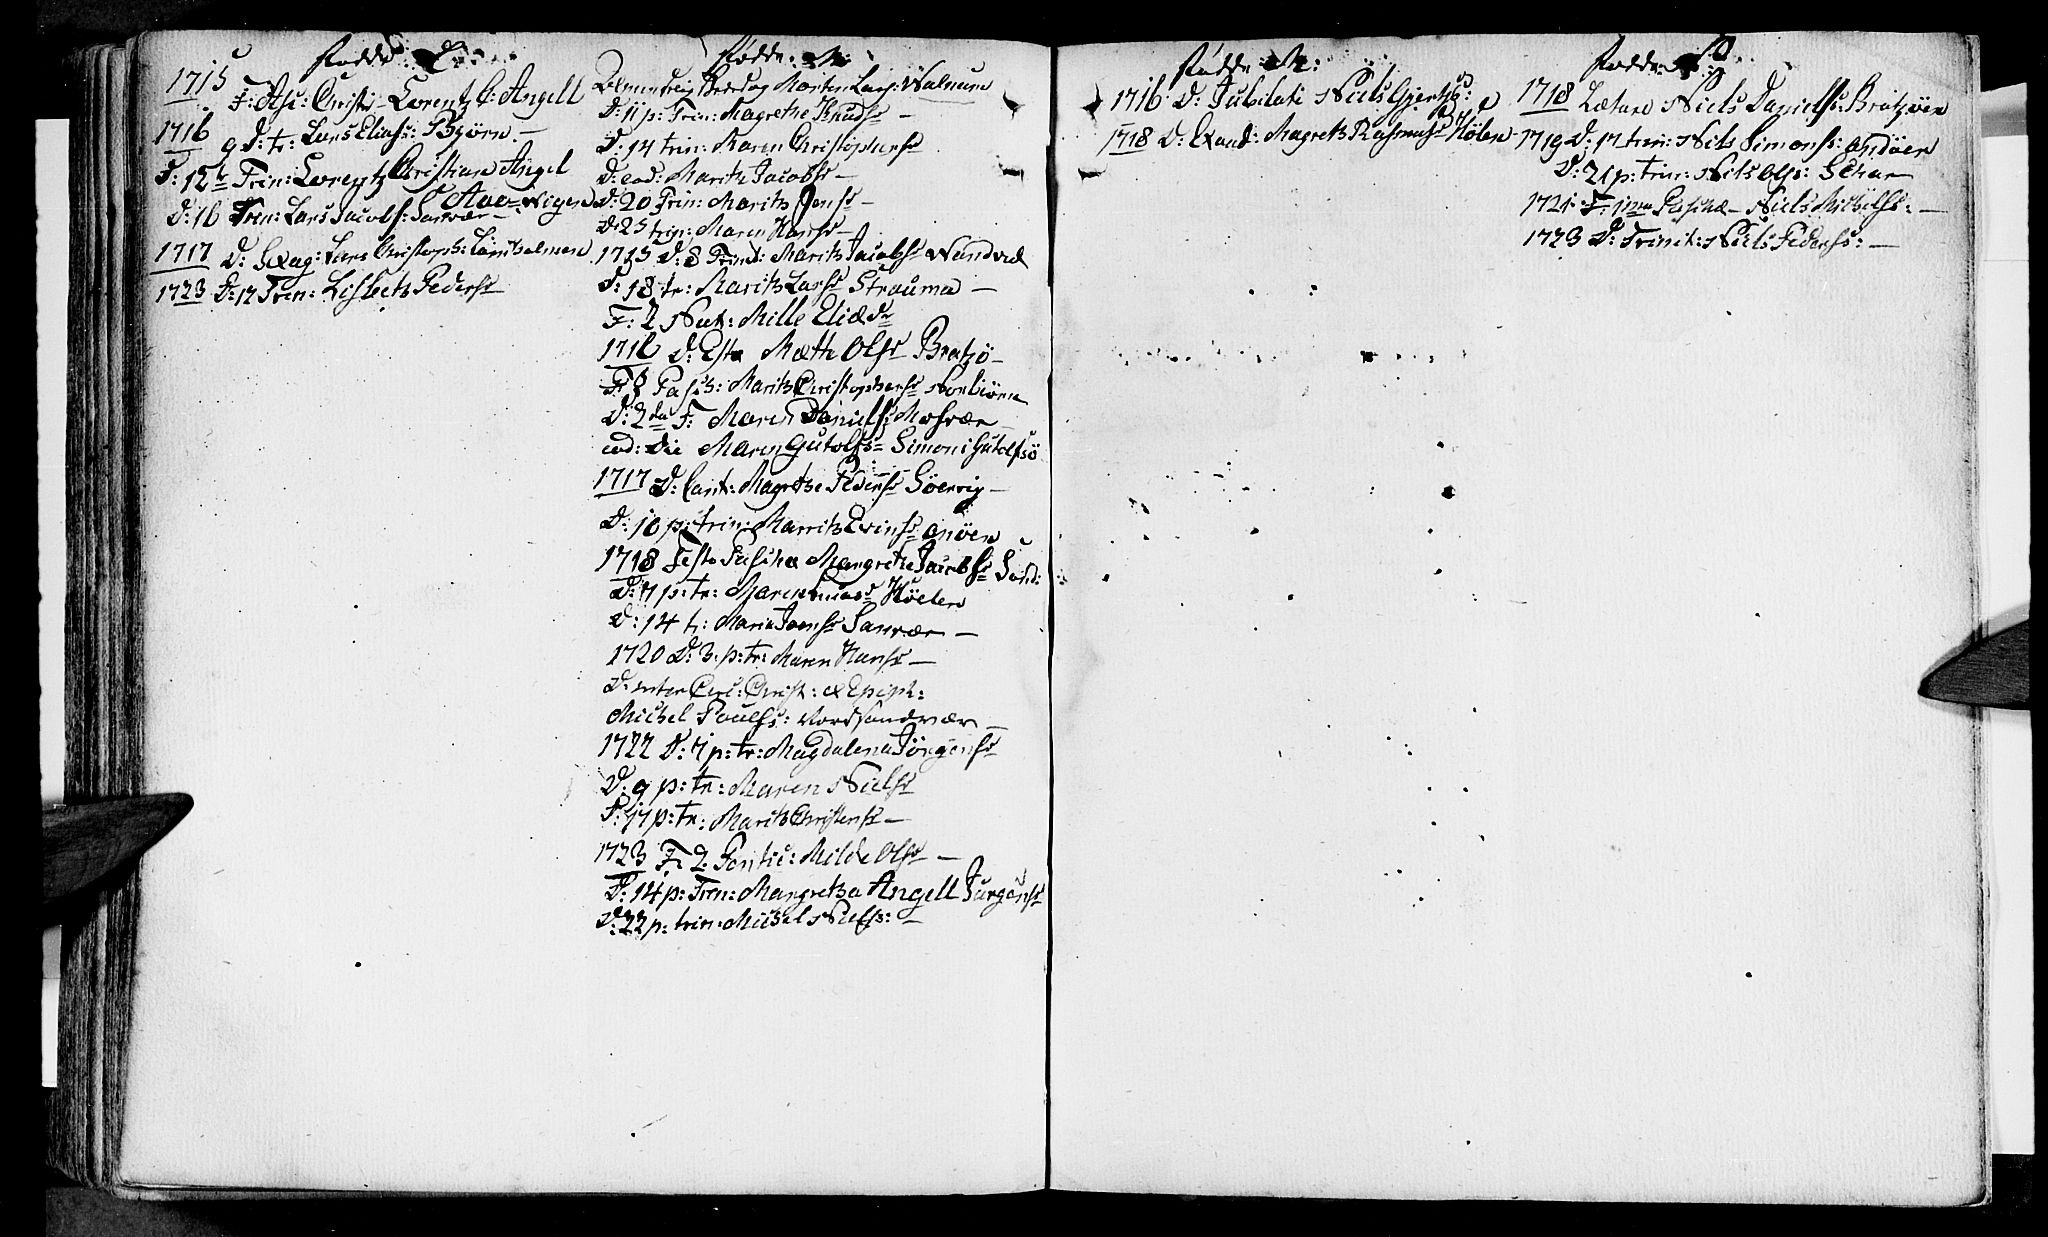 Fødde L
1715
F: Asc: Christi Lorentz C: Angell
1716
9 D: tr: Lars Eliass: Biørn —
F: 12te Trin: Lorentz Christian Angel
D: 16 Trin: Lars Jacobs: Sanvær —
1717 D: Sexag: Lars Christoph:
1723 D: 17 Trin: Lisbeth Pedersd
Fødde: M:
Morten Lars: Walnum
D: 11 p: Trin: Magrethe Knudsd —
D: 14 trin: Maren Christophersd
D: eod: Marith Jacobsd —
D: 20 Trin: Marith Jensd —
D: 25 trin: Maren Hansd —
1715 D: 8 Trinit: Marith Jacobsd Wandved
D: 18 tr: Marith Larsd Strauma —
F: 2 Nat: Mille Eliæ Dr
1716 D: Esto Mætte Olsd Bratzø —
F: 3 Pasch: Marith Christophersd
D: 2da F: Maren Daniels: Mosvær —
eod: Die Maren Gutolfsd Simon Gutolfsø
1717 D: Cant: Magrethe Pedersd Søervig —
D: 10 p: trin: Marrith Evinsd Anøen
1718 Festo Pascha Mangrethe Jacobsd Sand:
D: 7 p: tr: Maren Høelen
D: 14 tr: Maria Joensd Sanvær —
1720 D: 3. p: tr: Maren Hansd —
D: inter Circ: Christ: & Epiph:
Michel Pouels: Nordsandvær —
1722 D: 7 p: tr: Magdalena Jørgensd
D: 9 p: tr: Maren Nielsd
D: 17 p: tr: Marith Christensd —
1723 F: 2. Pentic: Milde Olsd —
D: 14 p: Trin: Mangretha Angell Jurgensd
D: 22 p: trin: Michel Niels: —
Fødde M:
1716 D: Jubilate Niels Gjertss:
1718 D: Exaud: Magreth Rasmusd Hølen
Fødde:
1718 Lætare Niels Daniels: Bratzøen
1719 D: 17 trin: Niels Simonss: Andøen
D: 21 p: trin: Niels Ols: Schar
1721 F: 1ma Paschæ — Niels Michels: —
1723 D: Trinit: Niels Pederss: —